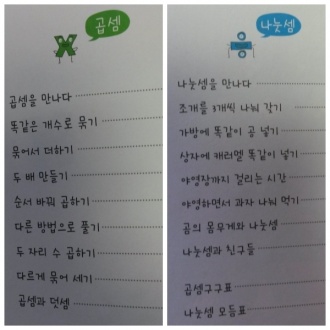 곱셈
곱셈을 만나다
똑같은 개수로 묶기
묶어서 더하기
두 배 만들기
순서 바꿔 곱하기
다른 방법으로 풀기
두 자리 수 곱하기
다르게 묶어 세기
곱셈과 덧셈
나눗셈
나눗셈을 만나다
조개를 3개씩 나눠 갖기
가방에 똑같이 공 넣기
상자에 캐러멜 똑같이 넣기
야영장까지 걸리는 시간
야영하면서 과자 나눠 먹기
곰의 몸무게와 나눗셈
나눗셈과 친구들
곱셈구구표
나눗셈 모듬표